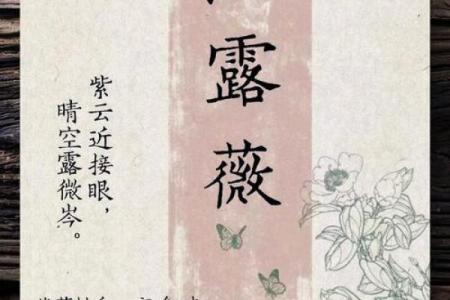 露薇
紫云近接眼，
晴空露微岑。